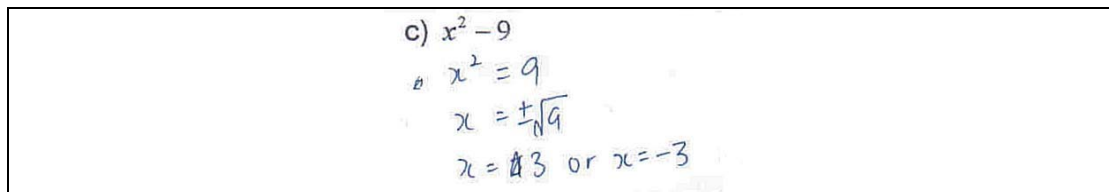 c) x² – 9
x² = 9
x = ±√9
x = 3 or x = -3